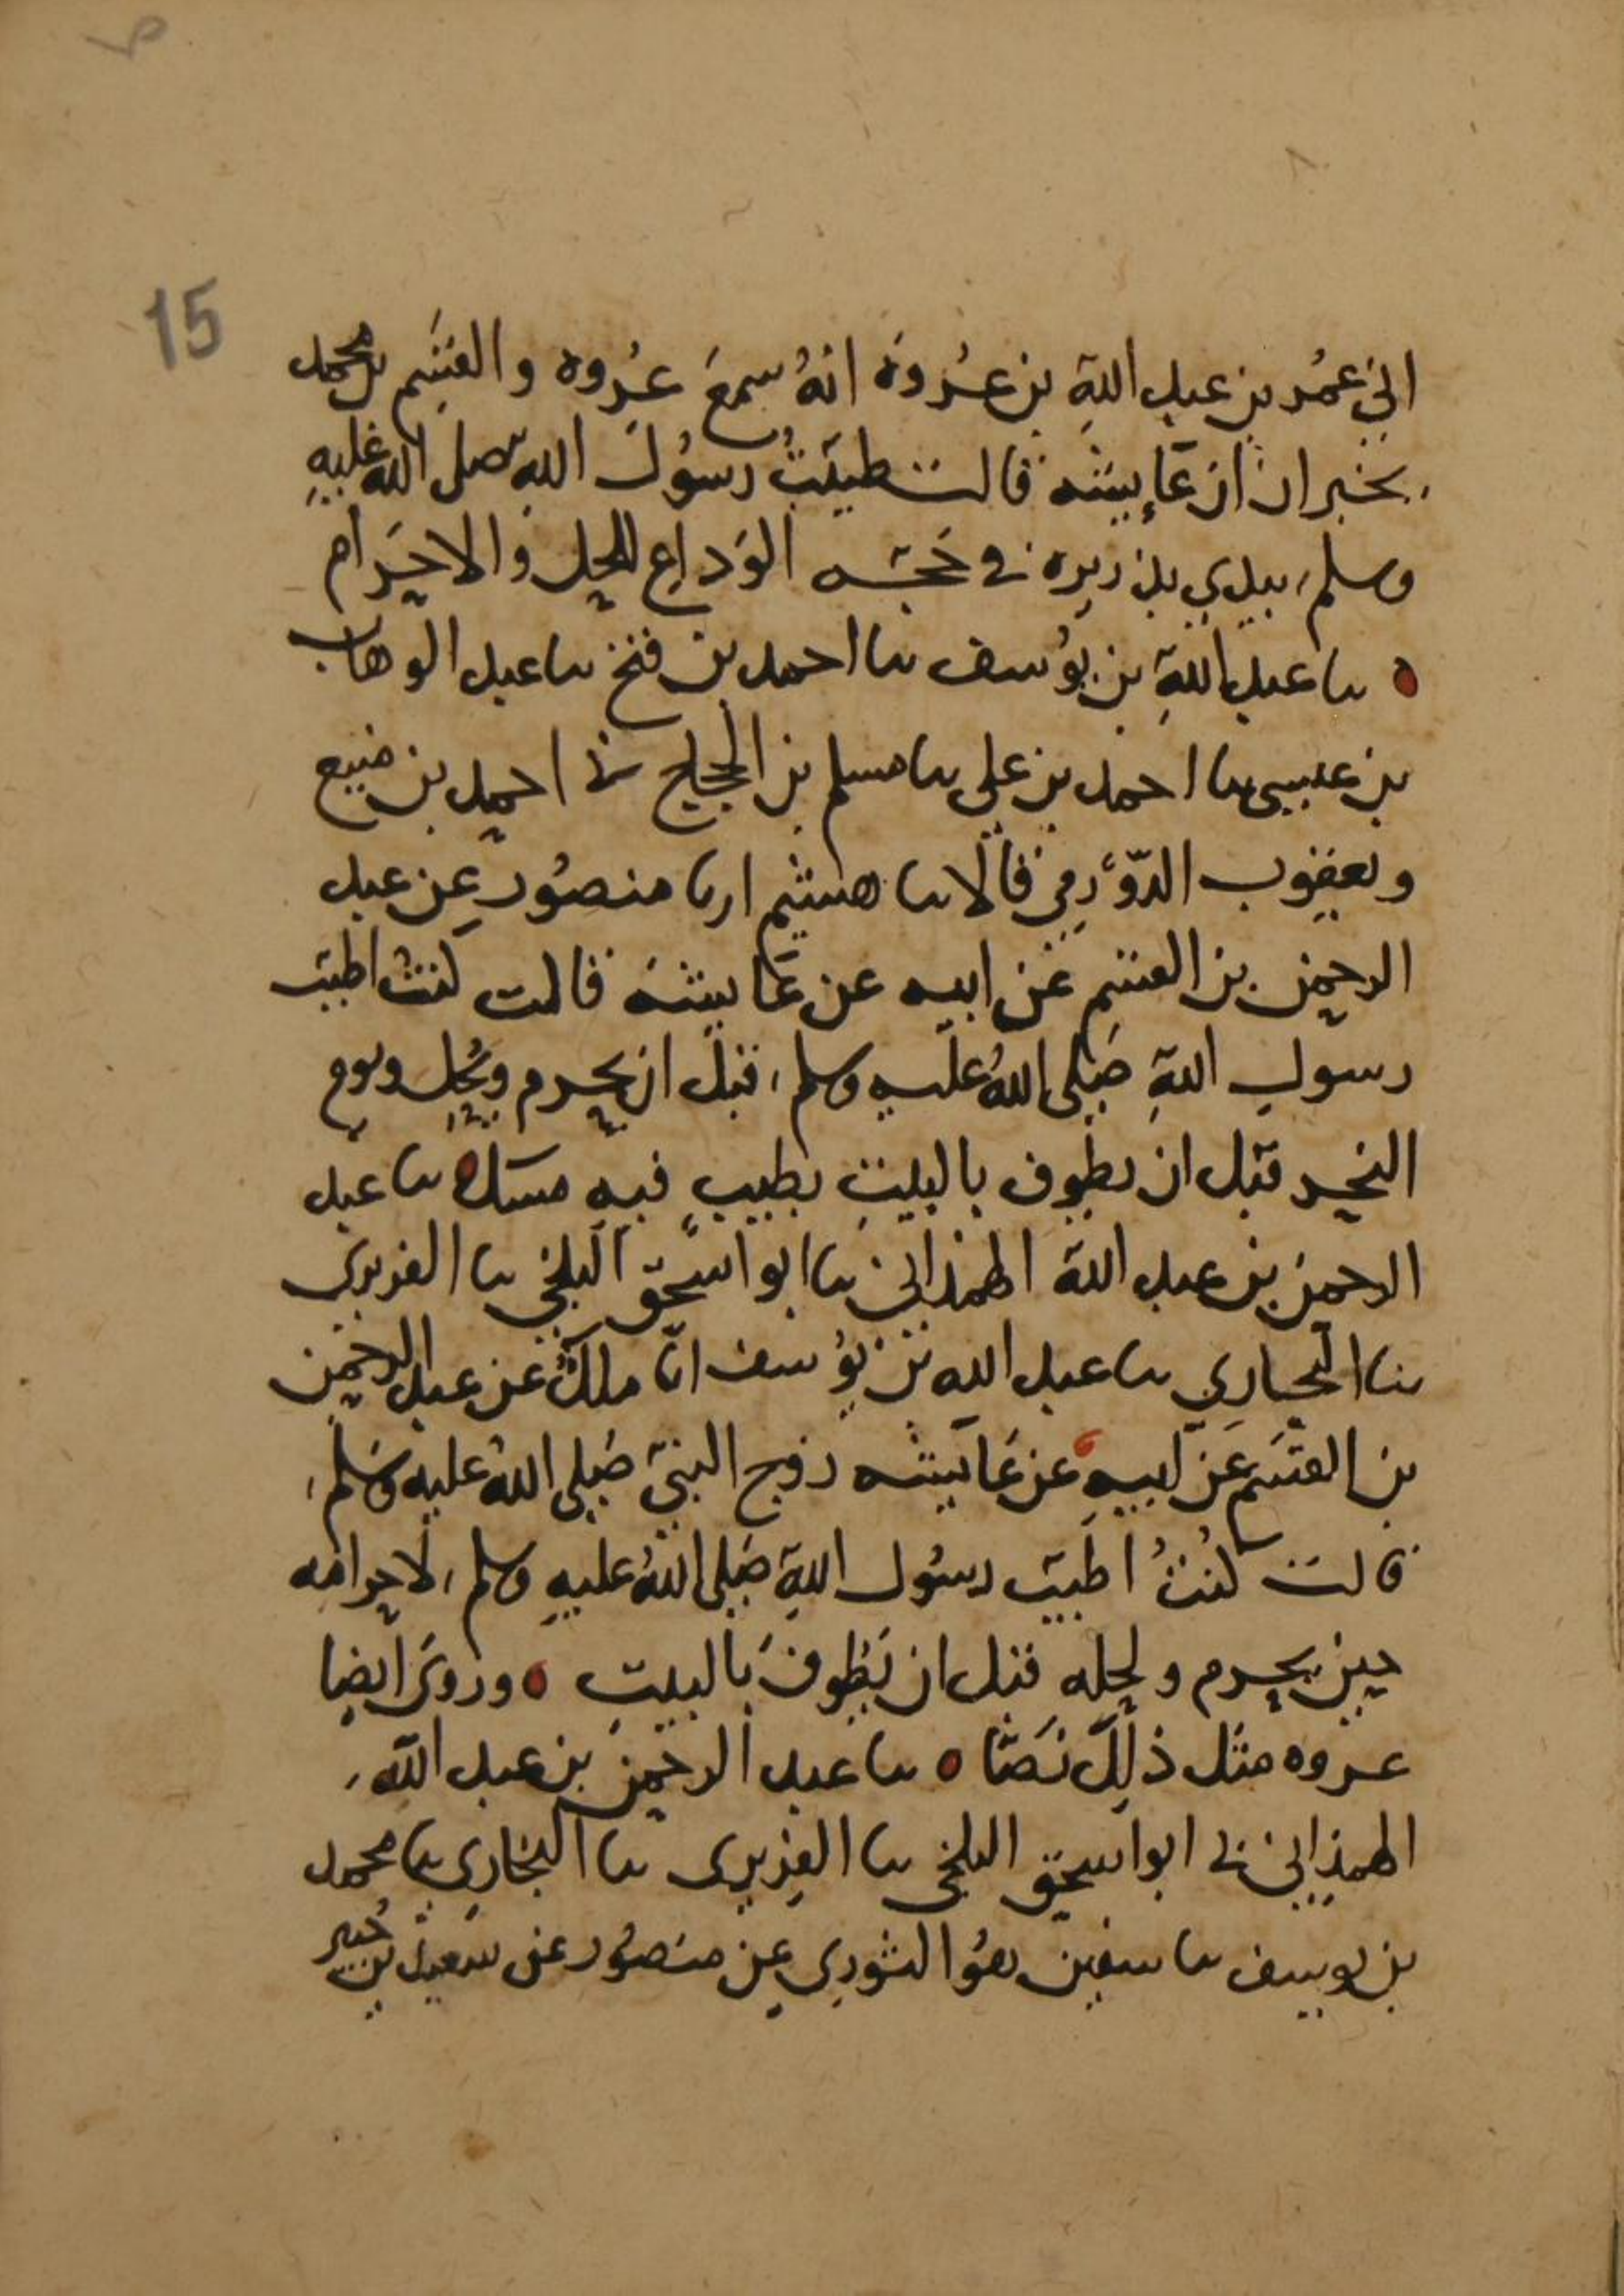 15
اني عمر بن عبد الله بن عروة انه سمع عروه والقسم بن محمد
يخبران ان عايشه قالت طيبت رسول الله صلى الله عليه
وسلم بيدي بذريره في حجه الوداع للحل والاحرام
ه ثنا عبد الله بن يوسف ثنا احمد بن فتح ثنا عبد الوهاب
بن عيسى ثنا احمد بن علي ثنا مسلم بن الحجاج ثنا احمد بن منيع
ويعقوب الدورقي قالا ثنا هشيم انا منصور عن عبد
الرحمن بن القسم عن ابيه عن عايشه قالت كنت اطيب
رسول الله صلى الله عليه وسلم قبل ان يحرم ويحل ويوم
النحر قبل ان يطوف بالبيت بطيب فيه مسك ه ثنا عبد
الرحمن بن عبد الله الهمذاني ثنا ابو اسحق البلخي ثنا الفربري
ثنا البخاري ثنا عبد الله بن يوسف انا ملك عن عبد الرحمن
بن القسم عن ابيه عن عايشه زوج النبي صلى الله عليه وسلم
قالت كنت اطيب رسول الله صلى الله عليه وسلم لاحرامه
حين يحرم ولحله قبل ان يطوف بالبيت ه وروى ايضا
عروه مثل ذلك نصا ه ثنا عبد الرحمن بن عبد الله
الهمذاني ثنا ابو اسحق البلخي ثنا الفربري ثنا البخاري ثنا محمد
بن يوسف ثنا سفين هو الثوري عن منصور عن سعيد بن جبير